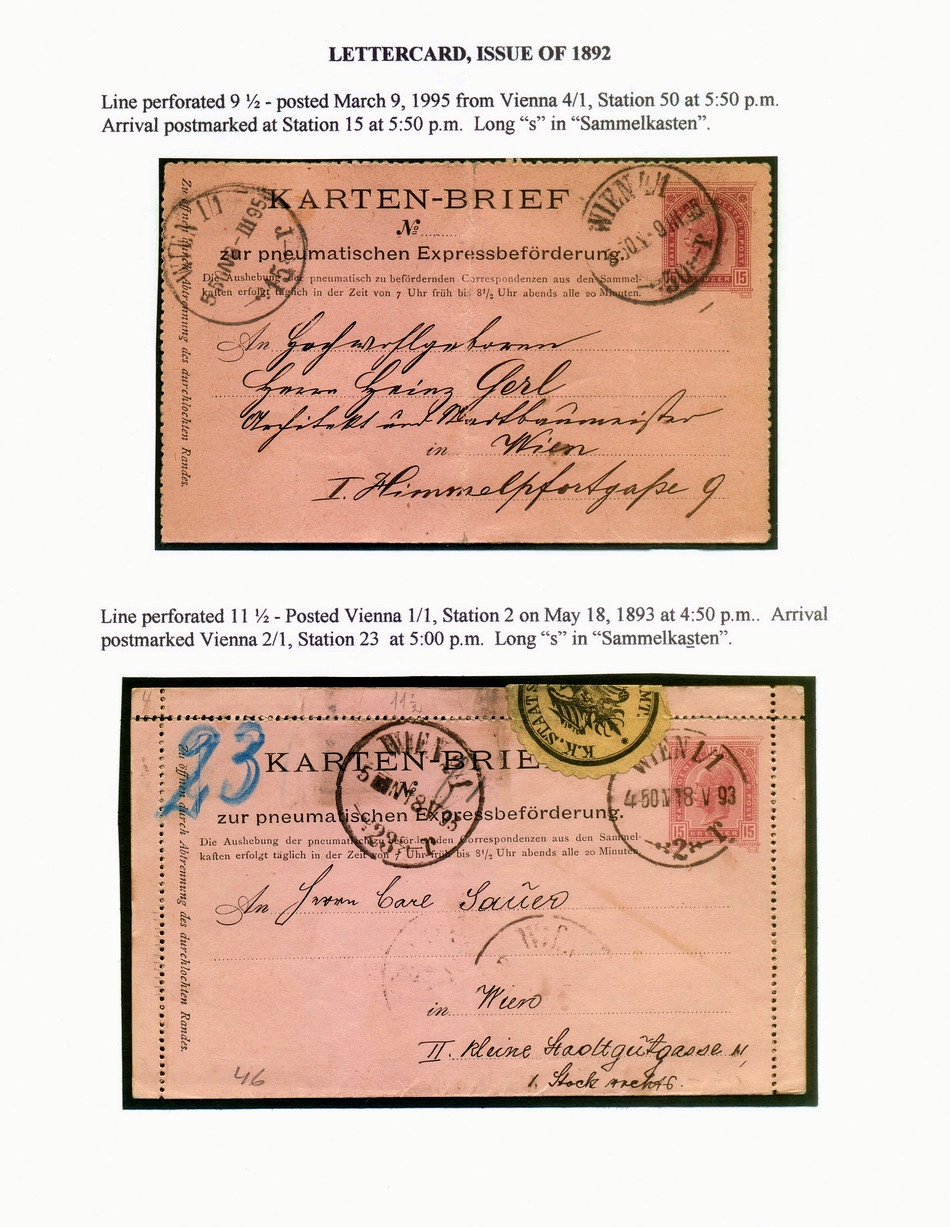 LETTERCARD, ISSUE OF 1892
Line perforated 9 ½ - posted March 9, 1995 from Vienna 4/1, Station 50 at 5:50 p.m.
Arrival postmarked at Station 15 at 5:50 p.m. Long “s” in “Sammelkasten”.
KARTEN-BRIEF
№
zur pneumatischen Expressbeförderung.
Die Aushebung der pneumatisch zu befördernden Correspondenzen aus den Sammel-
kaſten erfolgt täglich in der Zeit von 7 Uhr früh bis 8½ Uhr abends alle 20 Minuten.
Zu öffnen durch Abtrennung des durchlochten Randes.
WIEN 1/1
15
WIEN 4/1
50
15
An Hochwohlgeboren
Herrn Heinz Gerl
Architekt und Stadtbaumeister
in Wien
I. Himmelpfortgaße 9
Line perforated 11 ½ - Posted Vienna 1/1, Station 2 on May 18, 1893 at 4:50 p.m.. Arrival
postmarked Vienna 2/1, Station 23 at 5:00 p.m. Long “s” in “Sammelkasten”.
4
11½
23
K.K. STAATS
MT.
KARTEN-BRIE
№
zur pneumatischen Expressbeförderung.
Die Aushebung der pneumatisch zu befördernden Correspondenzen aus den Sammel-
kaſten erfolgt täglich in der Zeit von 7 Uhr früh bis 8½ Uhr abends alle 20 Minuten.
Zu öffnen durch Abtrennung des durchlochten Randes.
WIEN
18 V 93
23 T.
WIEN 1/1
4 50 N 18 V 93
2 T.
15 KREUZER 15
An Herrn Carl Sauer
WIEN
in Wien
II. Kleine Stadtgutgasse
1. Stock rechts.
46